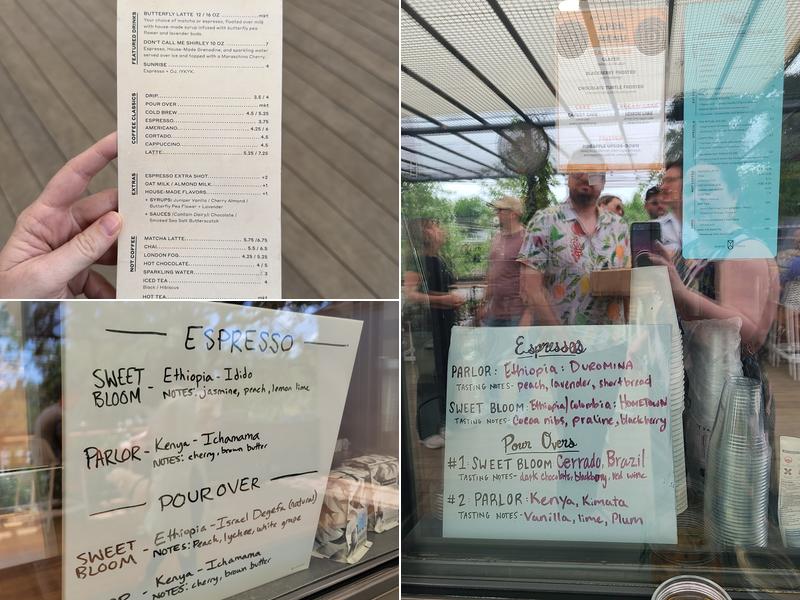 FEATURED DRINKS
BUTTERFLY LATTE 12 / 16 OZ mkt
Your choice of matcha or espresso, floated over milk
with house-made syrup infused with butterfly pea
flower and lavender buds.
DON'T CALL ME SHIRLEY 10 OZ 7
Espresso, House-Made Grenadine, and sparkling water
served over ice and topped with a Maraschino Cherry.
SUNRISE 4
Espresso + OJ. IYKYK.
COFFEE CLASSICS
DRIP 3.5 / 4
POUR OVER mkt
COLD BREW 4.5 / 5.25
ESPRESSO 3.75
AMERICANO 4.25 / 6
CORTADO 4.5
CAPPUCCINO 4.5
LATTE 5.25 / 7.25
EXTRAS
ESPRESSO EXTRA SHOT +2
OAT MILK / ALMOND MILK +1
HOUSE-MADE FLAVORS +1
+ SYRUPS: Juniper Vanilla / Cherry Almond /
Butterfly Pea Flower + Lavender
+ SAUCES (Contain Dairy): Chocolate /
Smoked Sea Salt Butterscotch
NOT COFFEE
MATCHA LATTE 5.75 / 6.75
CHAI 5.5 / 6.5
LONDON FOG 4.25 / 5.25
HOT CHOCOLATE 4 / 5
SPARKLING WATER 3
ICED TEA 4
Black / Hibiscus
HOT TEA mkt
GLAZED
BLACKBERRY FROSTED
CHOCOLATE TURTLE FROSTED
PINEAPPLE UPSIDE-DOWN
Espressos
PARLOR: Ethiopia: DUROMINA
TASTING NOTES- peach, lavender, shortbread
SWEET BLOOM: Ethiopia/Colombia: HOMETOWN
TASTING NOTES- Cocoa nibs, praline, blackberry
Pour Overs
#1: SWEET BLOOM Cerrado, Brazil
TASTING NOTES- dark chocolate, blackberry, red wine
#2: PARLOR: Kenya, Kimata
TASTING NOTES- Vanilla, lime, Plum
ESPRESSO
SWEET BLOOM - Ethiopia - Idido
NOTES: jasmine, peach, lemon lime
PARLOR - Kenya - Ichamama
NOTES: cherry, brown butter
POUR OVER
SWEET BLOOM - Ethiopia - Israel Degefa (natural)
NOTES: Peach, lychee, white grape
Kenya - Ichamama
NOTES: cherry, brown butter